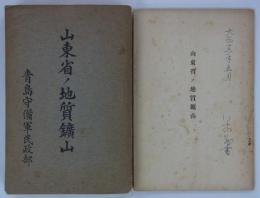 山東省ノ地質鑛山
青島守備軍民政部
山東省ノ地質鑛山